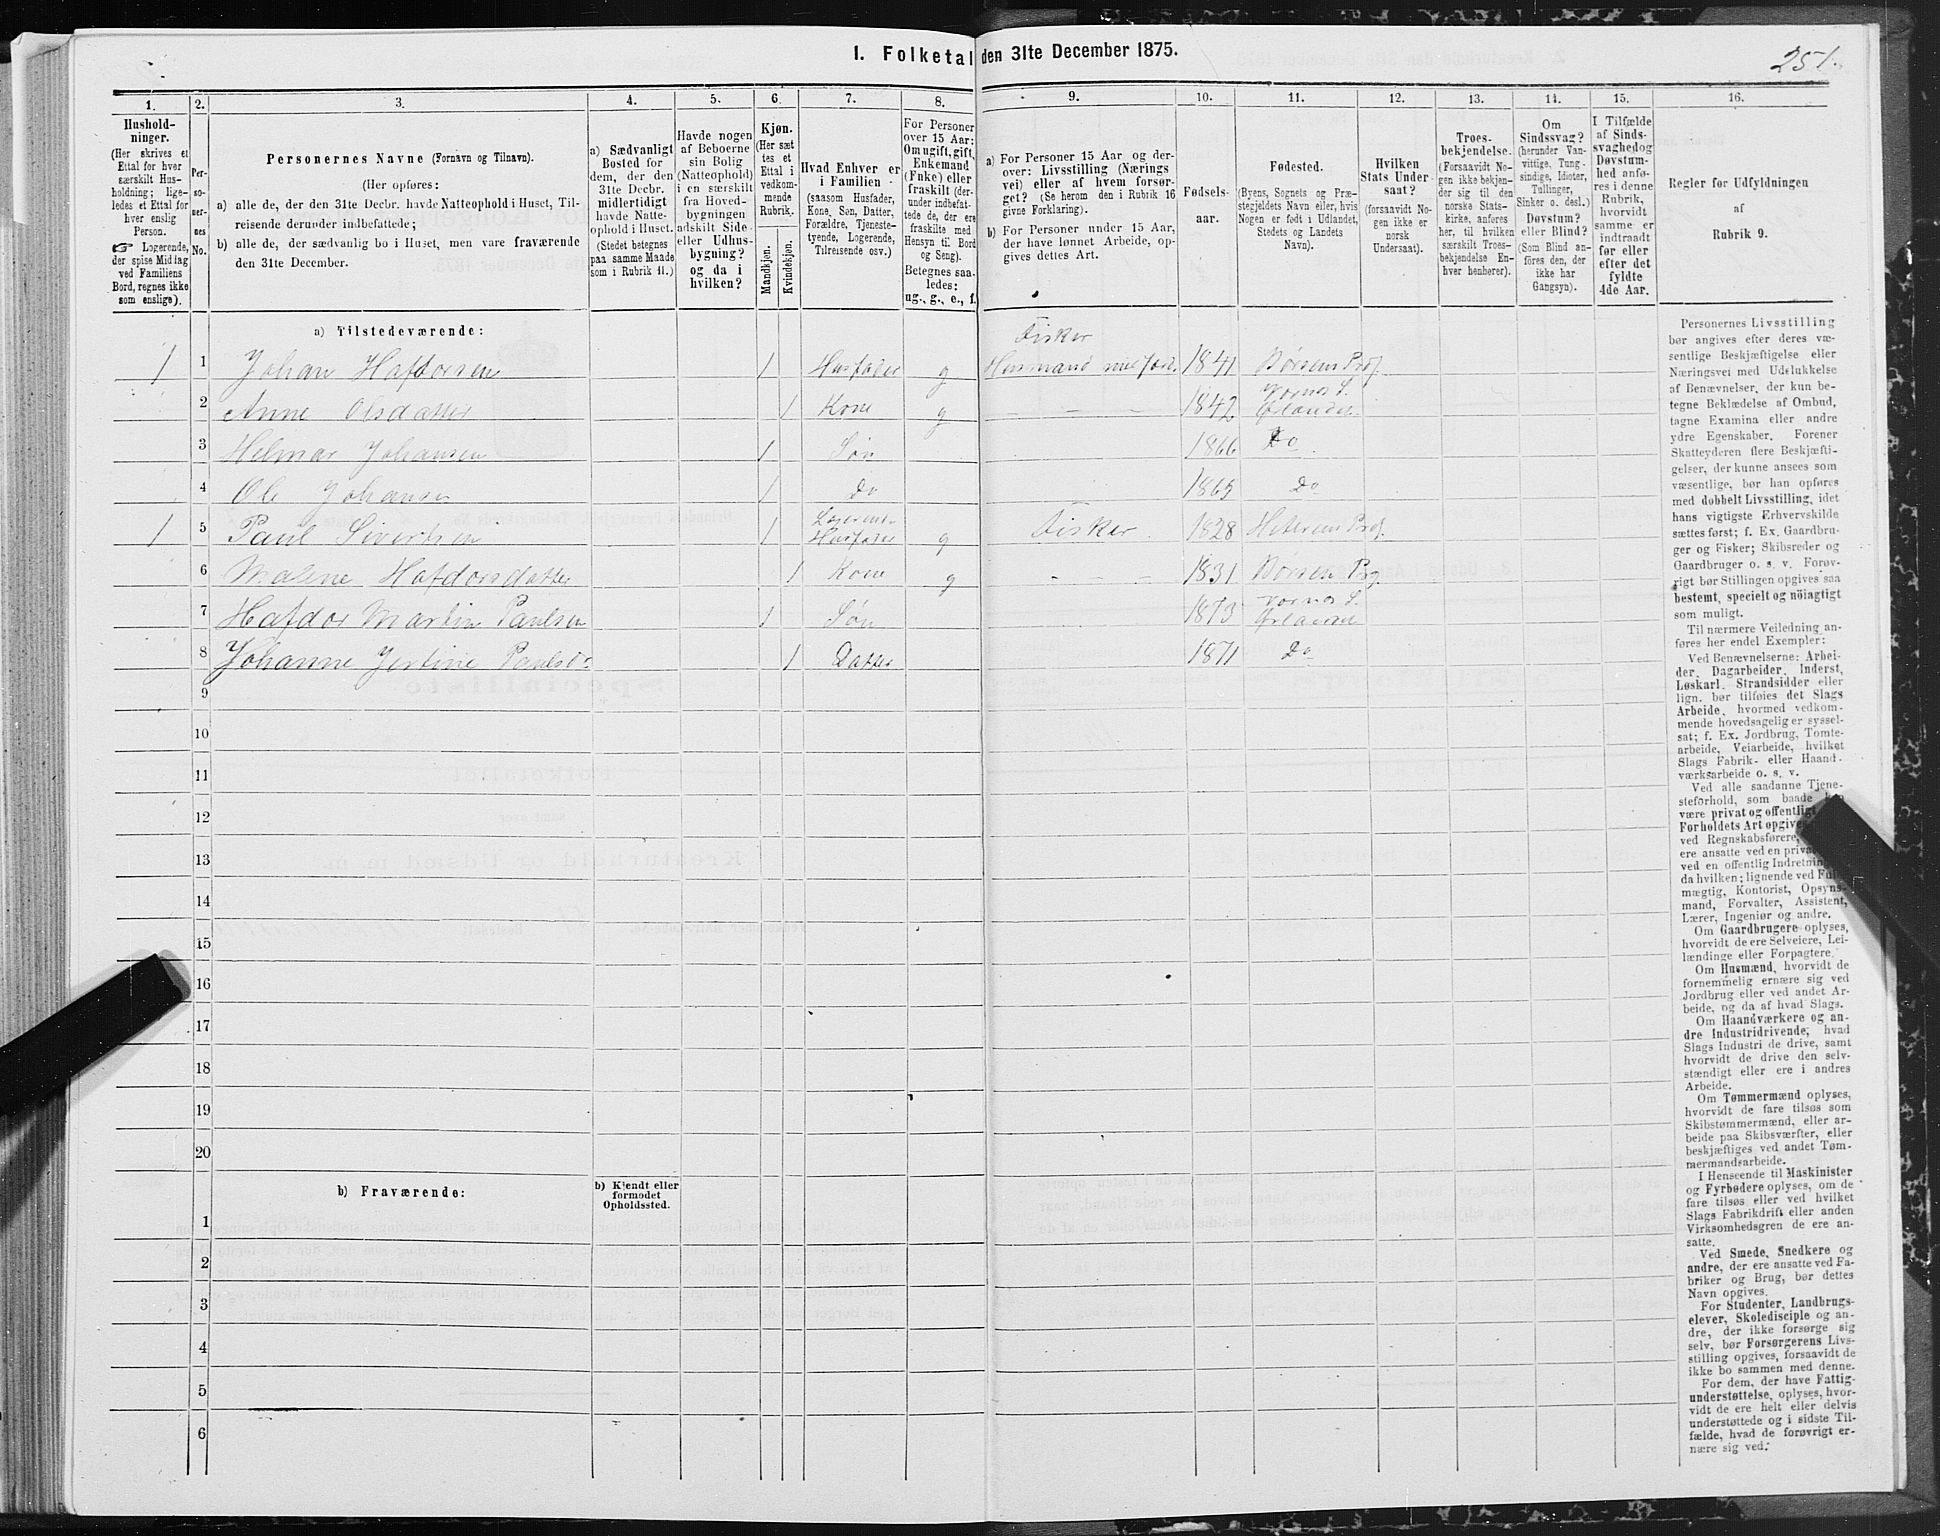 1. Folketal den 31te December 1875.
251.
1. 2. 3. 4. 5. 6. 7. 8. 9. 10. 11. 12. 13. 14. 15. 16.
Hushold-
ninger.
(Her skrives et
Ettal for hver
særskilt Hus-
holdning; lige-
ledes et Ettal for
hver enslig
Person.
☞ Logerende,
der spise Middag
ved Familiens
Bord, regnes ikke
som enslige).
Per-
so-
ner-
nes
No.
Personernes Navne (Fornavn og Tilnavn).
(Her opføres:
a) alle de, der den 31te Decbr. havde Natteophold i Huset, Til-
reisende derunder indbefattede;
b) alle de, der sædvanlig bo i Huset, men vare fraværende
den 31te December.
a) Sædvanligt
Bosted for
dem, der den
31te Decbr.
midlertidigt
havde Natte-
ophold i Huset.
(Stedet betegnes
paa samme Maade
som i Rubrik 11.)
Havde nogen
af Beboerne
sin Bolig
(Natteophold)
i en særskilt
fra Hoved-
bygningen
adskilt Side-
eller Udhus-
bygning?
og da i
hvilken?
Kjøn.
(Her sæt
tes et
Ettal i
vedkom-
mende
Rubrik.
Mandkjøn.
Kvindekjøn.
Hvad Enhver er
i Familien
(saasom Husfader,
Kone, Søn, Datter,
Forældre, Tjeneste-
tyende, Logerende,
Tilreisende osv.)
For Personer
over 15 Aar:
Om ugift, gift,
Enkemand
(Enke) eller
fraskilt (der-
under indbefat-
tede de, der ere
fraskilte med
Hensyn til Bord
og Seng).
Betegnes saa-
ledes:
ug., g., e., f.
a) For Personer 15 Aar og der-
over: Livsstilling (Nærings
vei) eller af hvem forsør-
get? (Se herom den i Rubrik 16
givne Forklaring).
b) For Personer under 15 Aar,
der have lønnet Arbeide, op-
gives dettes Art.
Fødsels-
aar.
Fødested.
(Byens, Sognets og Præ-
stegjeldets Navn eller, hvis
Nogen er født i Udlandet,
Stedets og Landets
Navn).
Hvilken
Stats Under-
saat?
(forsaavidt No-
gen ikke er
norsk
Undersaat).
Troes-
bekjendelse.
(Forsaavidt No-
gen ikke bekjen-
der sig til den
norske Stats-
kirke, anføres
her, til hvilken
særskilt Troes-
bekjendelse En-
hver henhører).
Om
Sindssvag?
(herunder Van-
vittige, Tung-
sindige, Idioter,
Tullinger,
Sinker o. desl.)
Døvstum?
eller Blind?
(Som Blind an-
føres den, der
ikke har
Gangsyn).
I Tilfælde
af Sinds-
svaghed og
Døvstum-
hed anfø-
res i denne
Rubrik,
hvorvidt
samme er
indtraadt
før eller
efter det
fyldte
4de Aar.
Regler for Udfyldningen
af
Rubrik 9.
a) Tilstedeværende:
Fisker
1 1 Johan Hafdorsen 1 Husfader g Husmand med Jord. 1841 Børsen Prg.
2 Anne Olsdatter 1 Kone g - - - 1842 Ørlandet
3 Helmar Johansen 1 Søn 1866 Do
4 Ole Johansen 1 Do 1865 Do
Logerende
1 5 Paul Sivertsen 1 Husfader g Fisker 1828 Hitteren Prg.
6 Malene Hafdorsdatter 1 Kone g - - - 1831 Børsen Prg
7 Hafdor Martin Paulsen 1 Søn 1873 Ørlandet
8 Johanne Paulsd. 1 Datter 1871 Do
9
10
11
12
13
14
15
16
17
18
19
20
b) Fraværende:
b) Kjendt eller
formodet
Opholdssted.
1
2
3
4
5
6
Personernes Livsstilling
bør angives efter deres væ-
sentlige Beskjæftigelse eller
Næringsvei med Udelukkelse
af Benævnelser, der kun be-
tegne Beklædelse af Ombud,
tagne Examina eller andre
ydre Egenskaber. Forener
Skatteyderen flere Beskjæfti-
gelser, der kunne ansees som
væsentlige, bør han opføres
med dobbelt Livsstilling, idet
hans vigtigste Erhvervskilde
sættes først; f. Ex. Gaardbru-
ger og Fisker; Skibsreder og
Gaardbruger o. s. v. Forøv-
rigt bør Stillingen opgives saa
bestemt, specielt og nöiagtigt
som muligt.
Til nærmere Veiledning an-
føres her endel Exempler:
Ved Benævnelserne: Arbei-
der, Dagarbeider, Inderst,
Løskarl, Strandsidder eller
lign. bør tilføies det Slags
Arbeide, hvormed vedkom-
mende hovedsagelig er syssel-
sat; f. Ex. Jordbrug, Tomte-
arbeide, Veiarbeide, hvilket
Slags Fabrik- eller Haand-
værksarbeide o. s. v.
Ved alle saadanne Tjene-
steforhold, som baade
være privat og offentligt
Forholdets Art opgives
ved Regnskabsførere,
ere ansatte ved en
ved en offentlig
da hvilken; lignende ved
mægtig, Kontorist, Opsyns-
mand, Forvalter, Assistent,
Lærer, Ingeniør og andre.
Om Gaardbrugere oplyses,
hvorvidt de ere Selveiere, Lei-
lændinge eller Forpagtere.
Om Husmænd, hvorvidt de
fornemmelig ernære sig ved
Jordbrug eller ved andet Ar-
beide, og da af hvad Slags.
Om Haandværkere og an-
dre Industridrivende, hvad
Slags Industri de drive, samt
hvorvidt de drive den selv-
stændigt eller ere i andres
Arbeide.
Om Tømmermænd oplyses,
hvorvidt de fare tilsøs som
Skibstømmermænd, eller ar-
beide paa Skibsværfter, eller
beskjæftiges ved andet Tøm-
mermandsarbeide.
I Henseende til Maskinister
og Fyrbødere oplyses, om de
fare tilsøs eller ved hvilket
Slags Fabrikdrift eller anden
Virksomhedsgren de ere an-
satte.
Ved Smede, Snedkere og
andre, der ere ansatte ved Fa-
briker og Brug, bør dettes
Navn opgives.
For Studenter, Landbrugs-
elever, Skoledisciple og an-
dre, der ikke forsørge sig
selv, bør Forsørgerens Livs-
stilling opgives, forsaavidt de
ikke bo sammen med denne.
For dem, der have Fattig-
understøttelse, oplyses, hvor-
vidt de ere helt eller delvis
understøttede og i sidste Til-
fælde, hvad de forøvrigt er-
nære sig ved.